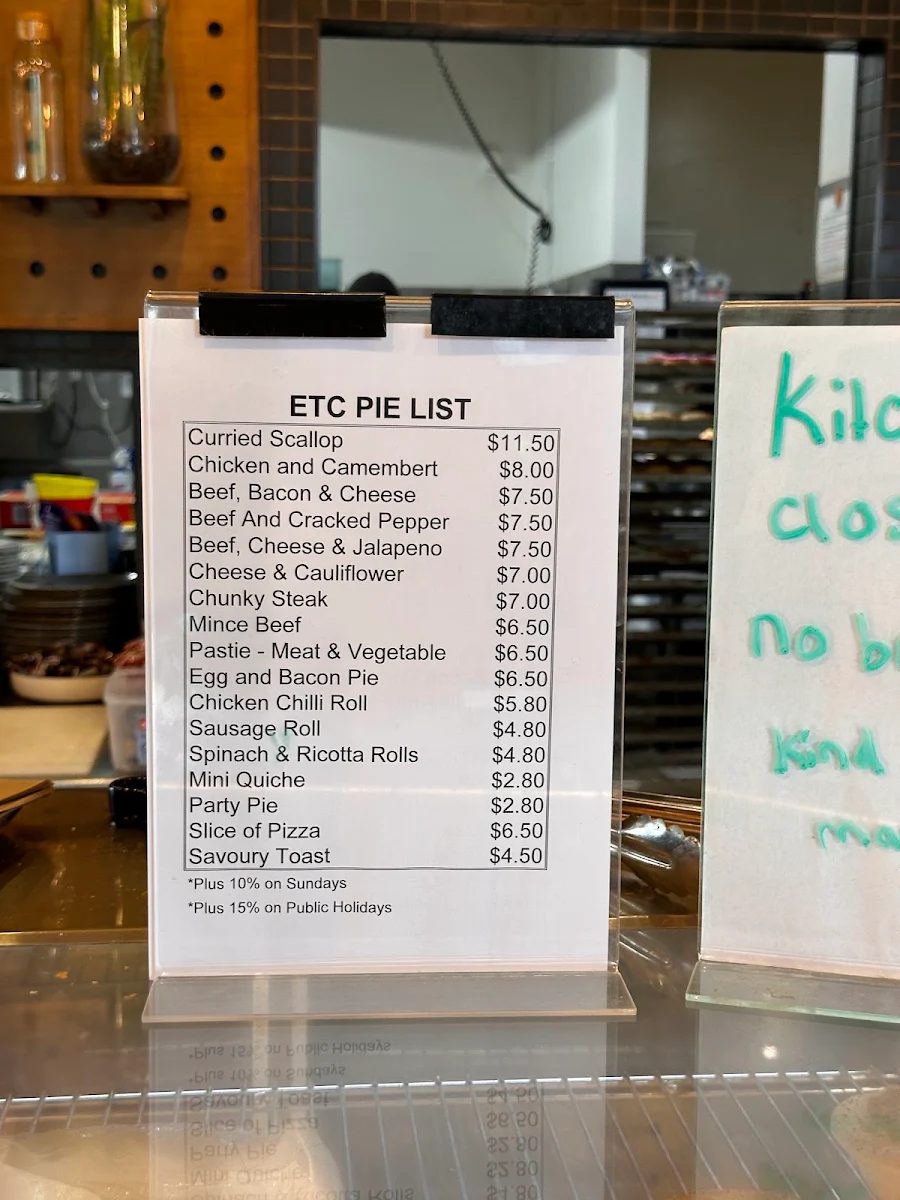 ETC PIE LIST
Curried Scallop $11.50
Chicken and Camembert $8.00
Beef, Bacon & Cheese $7.50
Beef And Cracked Pepper $7.50
Beef, Cheese & Jalapeno $7.50
Cheese & Cauliflower $7.00
Chunky Steak $7.00
Mince Beef $6.50
Pastie - Meat & Vegetable $6.50
Egg and Bacon Pie $6.50
Chicken Chilli Roll $5.80
Sausage Roll $4.80
Spinach & Ricotta Rolls $4.80
Mini Quiche $2.80
Party Pie $2.80
Slice of Pizza $6.50
Savoury Toast $4.50
*Plus 10% on Sundays
*Plus 15% on Public Holidays
no
Kind